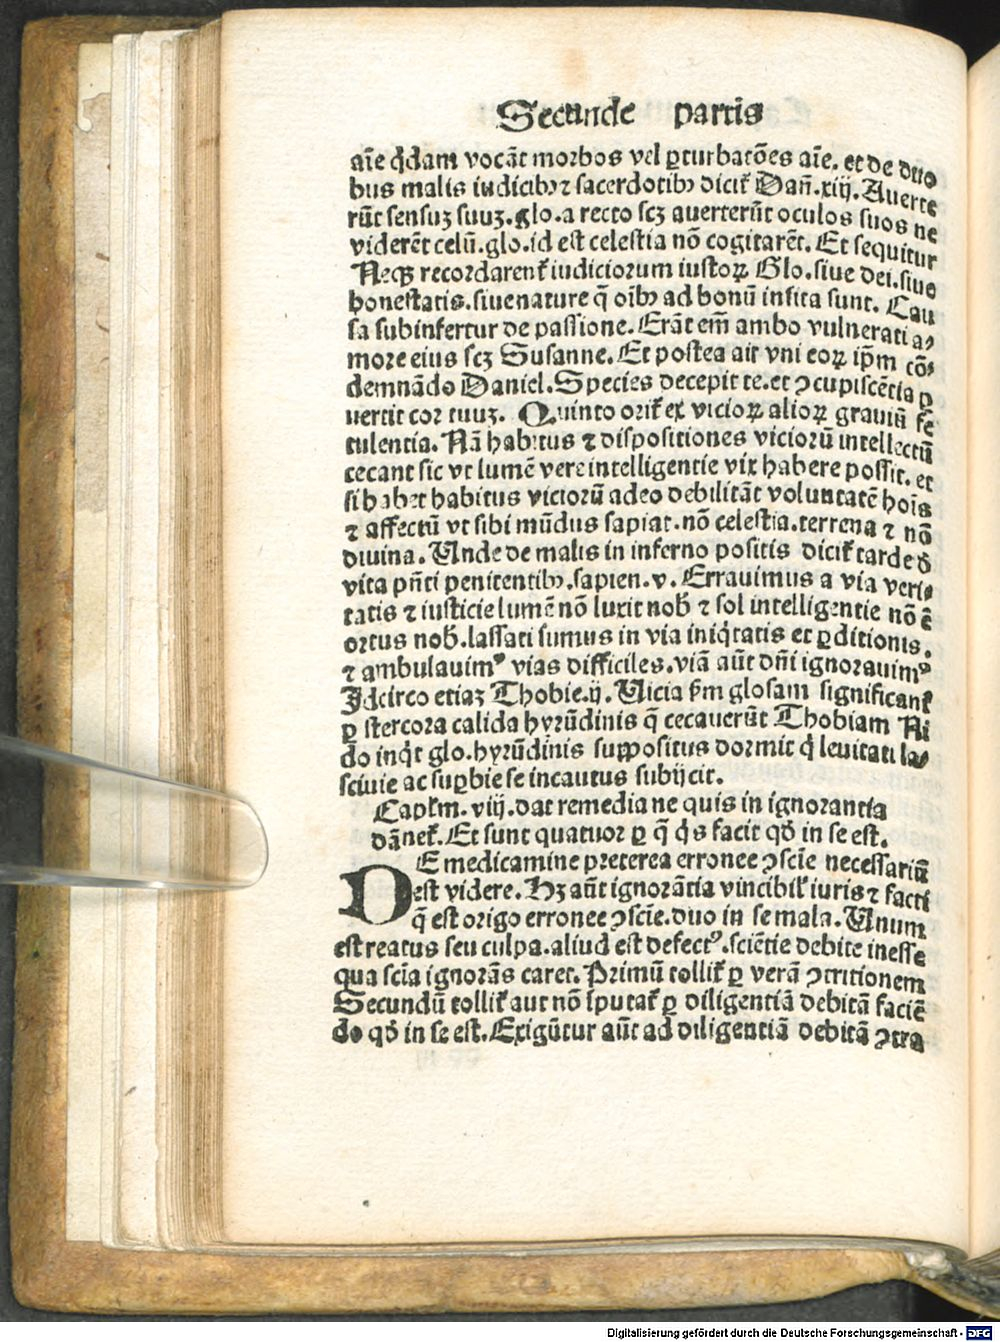 Secunde partis
aīe q̇dam vocāt morbos vel ꝑturbatōes aīe. et de duo
bus malis iudicibꝫ ⁊ sacerdotibꝫ dicit᷑ Dañ.xiij. Auerte
rūt sensuꝫ suuꝫ.glo.a recto scꝫ auerterūt oculos suos ne
viderēt celū.glo.id est celestia nō cogitarēt. Et sequitur
Necꝫ recordarent᷑ iudiciorum iustoꝝ Glo.siue dei.siue
honestatis.siue nature q̄ oībꝫ ad bonū insita sunt. Cau
sa subinfertur de passione. Erāt em̄ ambo vulnerati a⸗
more eius scꝫ Susanne. Et postea ait vni eoꝝ ip̄m cō⸗
demnādo Daniel. Species decepit te. et ꝯcupiscētia ꝑ
uertit cor tuuꝫ. Quinto orit᷑ ex vicioꝝ alioꝝ grauiū fe
tulentia. Nā habitus ⁊ dispositiones viciorū intellectū
cecant sic vt lumē vere intelligentie vix habere possit. et
si habet habitus viciorū adeo debilitāt voluntatē hoīs
⁊ affectū vt sibi mūdus sapiat.nō celestia.terrena ⁊ nō
diuina. Unde de malis in inferno positis dicit᷑ tarde đ
vita pn̄ti penitentibꝫ.sapien.v. Errauimus a via veri⸗
tatis ⁊ iusticie lumē nō luxit nob̄ ⁊ sol intelligentie nō ē
ortus nob̄.lassati sumus in via iniq̇tatis et ꝑditionis.
⁊ ambulauimꝰ vias difficiles.viā aūt dn̄i ignorauimꝰ
Idcirco etiaꝫ Thobie.ij. Uicia ẜm glosam significant᷑
ꝑ stercora calida hyrūdinis q̄ cecauerūt Thobiam Ni
do inq̇t glo.hyrūdinis suppositus dormit q̇ leuitati la⸗
sciuie ac suꝑbie se incautus subijcit.
Capl̄m. viij. dat remedia ne quis in ignorantia
dānet᷑. Et sunt quatuor ꝑ q̄ q̇s facit qđ in se est.
DE medicamine preterea erronee ꝯscīe necessariū
est videre. Hꝫ aūt ignorātia vincibil᷑ iuris ⁊ facti
q̄ est origo erronee ꝯscīe.duo in se mala. Unum
est reatus seu culpa.aliud est defectꝰ.sciētie debite inesse
qua scīa ignorās caret. Primū tollit᷑ ꝑ verā ꝯtritionem
Secundū tollit᷑ aut nō īputat᷑ ꝑ diligentiā debitā faciē
do qđ in se est. Exigūtur aūt ad diligentiā debitā ꝯtra
Digitalisierung gefördert durch die Deutsche Forschungsgemeinschaft - DFG